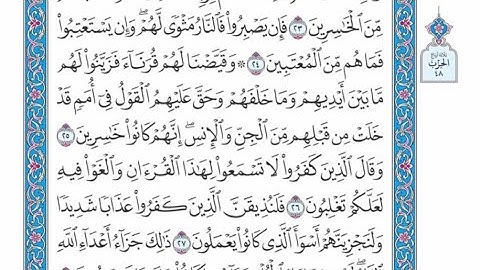 مِّنَ ٱلۡخَٰسِرِينَ ٢٣ فَإِن يَصۡبِرُواْ فَٱلنَّارُ مَثۡوٗى لَّهُمۡۖ وَإِن يَسۡتَعۡتِبُواْ
فَمَا هُم مِّنَ ٱلۡمُعۡتَبِينَ ٢٤ ۞ وَقَيَّضۡنَا لَهُمۡ قُرَنَآءَ فَزَيَّنُواْ لَهُم
مَّا بَيۡنَ أَيۡدِيهِمۡ وَمَا خَلۡفَهُمۡ وَحَقَّ عَلَيۡهِمُ ٱلۡقَوۡلُ فِيٓ أُمَمٖ قَدۡ
خَلَتۡ مِن قَبۡلِهِم مِّنَ ٱلۡجِنِّ وَٱلۡإِنسِۖ إِنَّهُمۡ كَانُواْ خَٰسِرِينَ ٢٥
وَقَالَ ٱلَّذِينَ كَفَرُواْ لَا تَسۡمَعُواْ لِهَٰذَا ٱلۡقُرۡءَانِ وَٱلۡغَوۡاْ فِيهِ
لَعَلَّكُمۡ تَغۡلِبُونَ ٢٦ فَلَنُذِيقَنَّ ٱلَّذِينَ كَفَرُواْ عَذَابٗا شَدِيدٗا
وَلَنَجۡزِيَنَّهُمۡ أَسۡوَأَ ٱلَّذِي كَانُواْ يَعۡمَلُونَ ٢٧ ذَٰلِكَ جَزَآءُ أَعۡدَآءِ ٱللَّهِ
ثلاثة أرباع
الحزب
٤٨